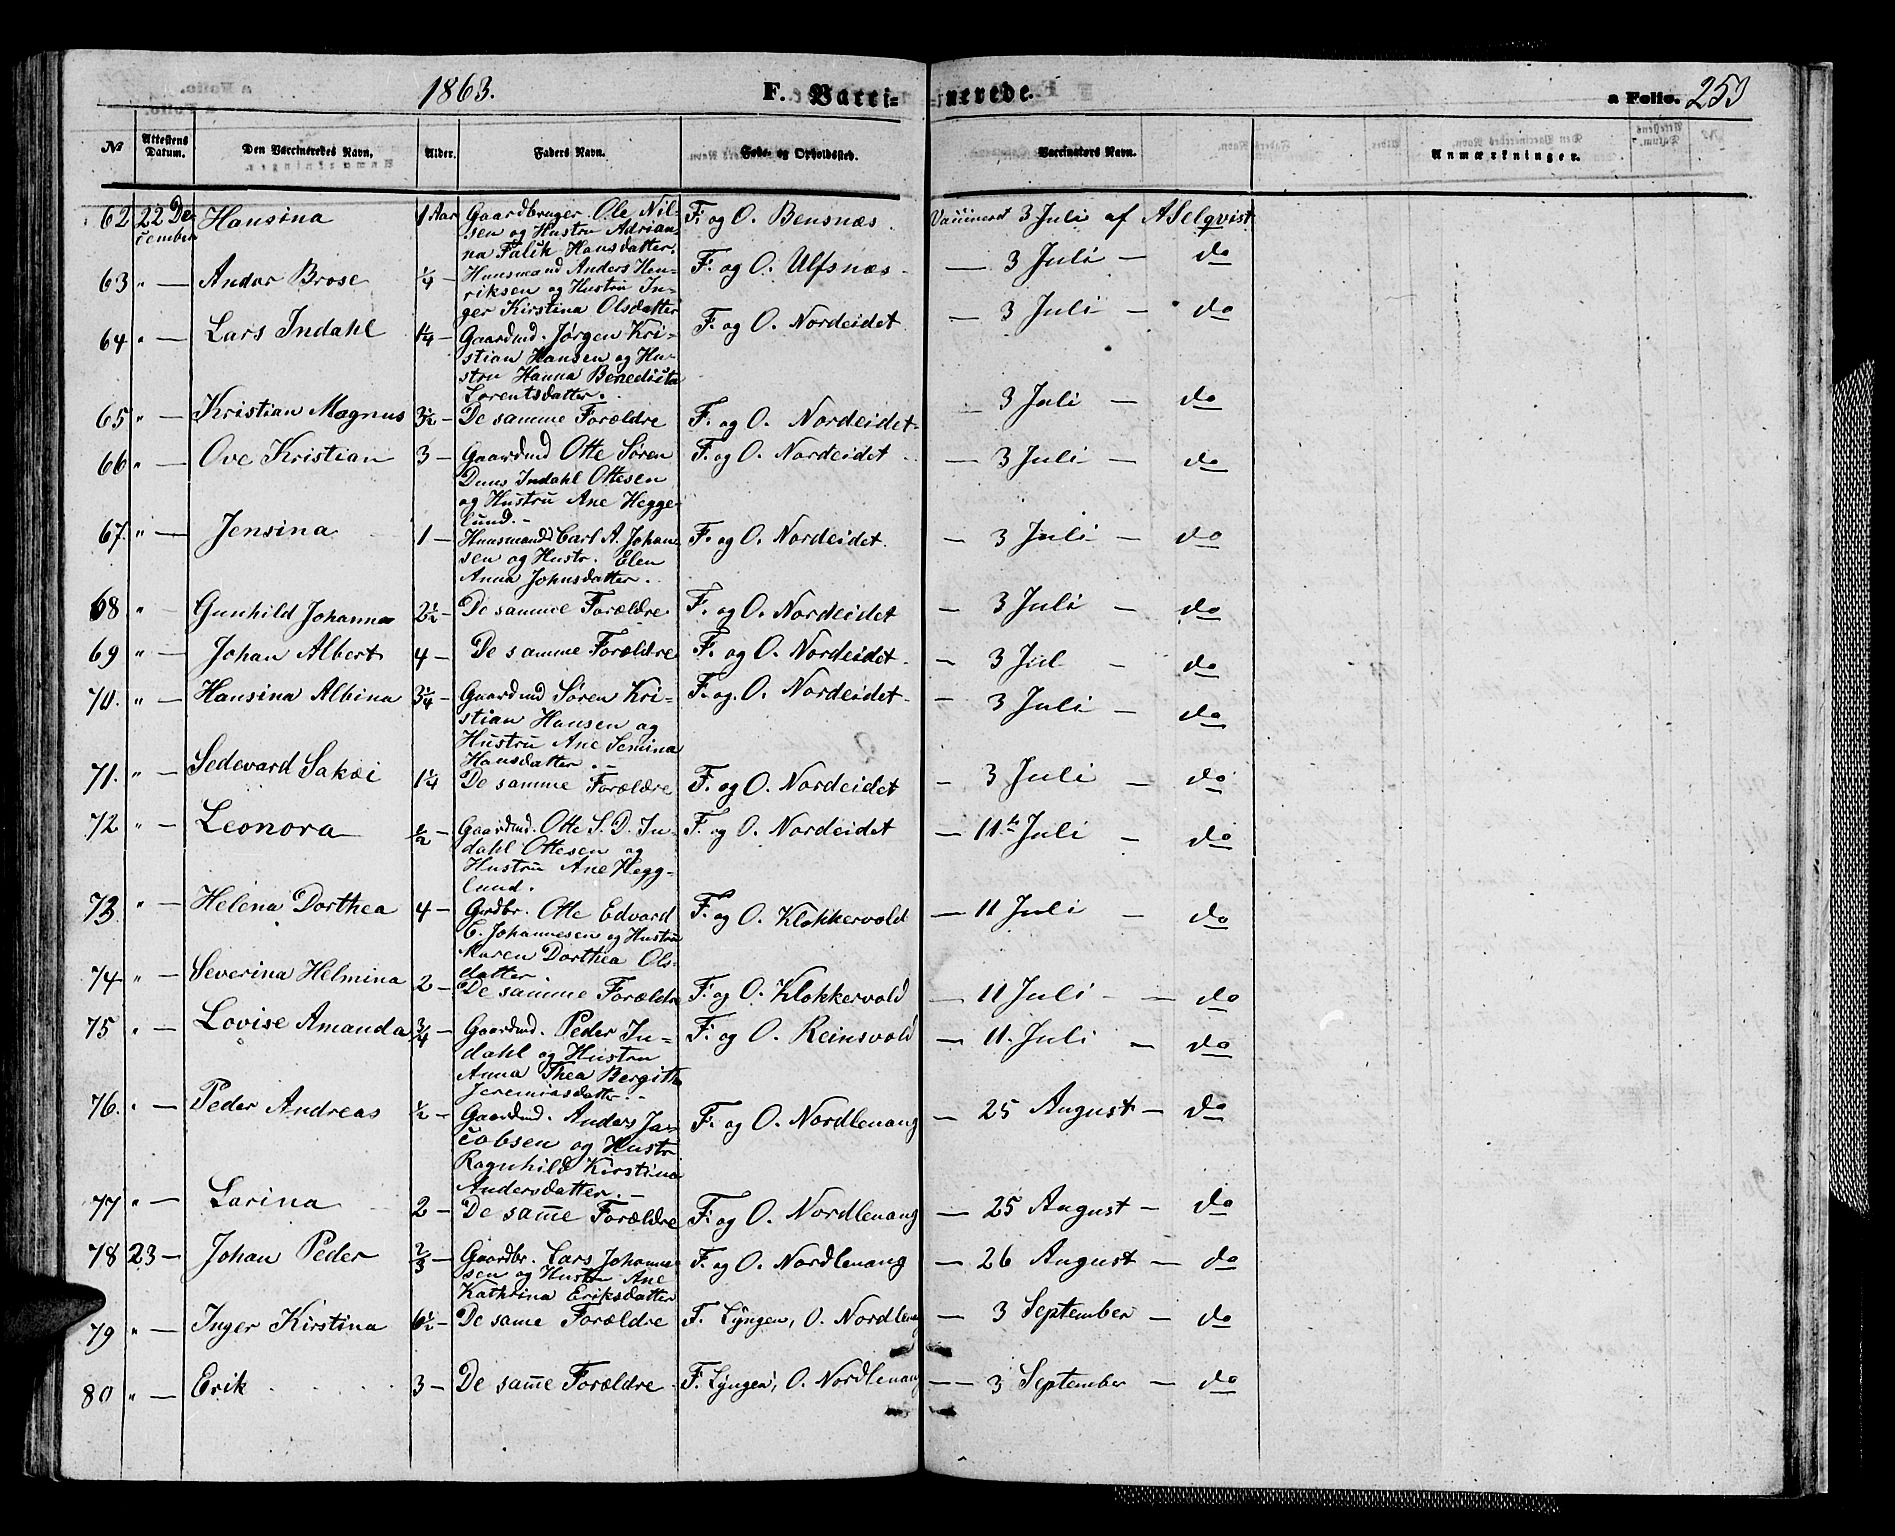 1863. F. Vacci- nerede. a Folio. 253
No Attestens Datum. Den Vaccineredes Navn. Alder. Faders Navn. Føde- og Opholdssted. Vaccinators Navn. Anmærkninger.
62 22 De- Hansina 1 Aar Gaardbruger. Ole Nil- F. og O. Bensnæs Vaccineret 3 Juli af A Selqvist
cember sen og Hustru Adrian-
na Falik Hansdatter.
63 " — Andor Brose 1/4 — Huusmand Anders Hen- F. og O. Ulfsnæs — 3 Juli — do
riksen og Hustru In-
ger Kirstina Olsdatter
64 " — Lars Indahl 1 1/4 — Gaardmd. Jørgen Kri- F. og O. Nordeidet — 3 Juli — do
stian Hansen og Hu-
stru Hanna Benedicta
Lorentsdatter.
65 " — Kristian Magnus 3 1/2 — De samme Forældre F. og O. Nordeidet — 3 Juli — do
66 " — Ove Kristian 3 — Gaardmd Otte Søren F. og O. Nordeidet — 3 Juli — do
Duus Indahl Ottesen
og Hustru Ane Hegge-
lund. -
67 " — Jensina 1 — Huusmand Carl A. Johan- F. og O. Nordeidet. — 3 Juli — do
sen og Hustr. Elen
Anna Johnsdatter.
68 " — Gunhild Johanna 2 1/2 — De samme Forældre F. og O. Nordeidet — 3 Juli — do
69 " — Johan Albert 4 — De samme Forældre F. og O. Nordeidet — 3 Jul — do
70. " — Hansina Albina 3 1/4 — Gaardmd Søren Kri- F. og. O. Nordeidet — 3 Juli — do
stian Hansen og
Hustru Ane Semina
Hansdatter. -
71. " — Sedevard Sakæi 1 1/4 — De samme Forældre F. og O. Nordeidet — 3 Juli — do
72 " — Leonora 1/2 — Gaardmd. Otte S. D. In- F. og O. Nordeidet — 11te Juli — do
dahl Ottesen og
Hustru Ane Hegg-
lund.
73 " — Helena Dorthea 4 — Grdbr. Otte Edvard F. og O. Klokkervold — 11 Juli — do
E. Johannesen og Hustru
Maren Dorthea Ols-
datter.
74 " — Severina Helmina 2 — De samme Forældre F. og O. Klokkervold — 11 Juli — do
75 " — Lovise Amanda 3/4 — Gaardmd. Peder In- F. og O. Reinsvold — 11. Juli — do
dahl og Hustru
Anna Thea Bergitta
Jeremiasdatter. -
76. " — Peder Andreas 1/2 — Gaardmd. Anders Ja- F. og O. Nordlenang — 25 August — do
cobsen og Hustr
Ragnhild Kirstina
Andersdatter. -
77 " — Larina 2 — De samme Forældre F. og O. Nordlenang — 25 August — do
78 23 — Johan Peder 2/3 — Gaardbr. Lars Johanne- F. og O. Nordlenang — 26 August — do
sen og Hustru Ane
Kathrina Eriksdatter
79 " — Inger Kirstina 6 1/2 — De same Forældre F. Lyngen, O. Nordlenang — 3 September — do
80 " — Erik 3 — De samme Forældre F. Lyngen, O. Nordlenang — 3 September — do